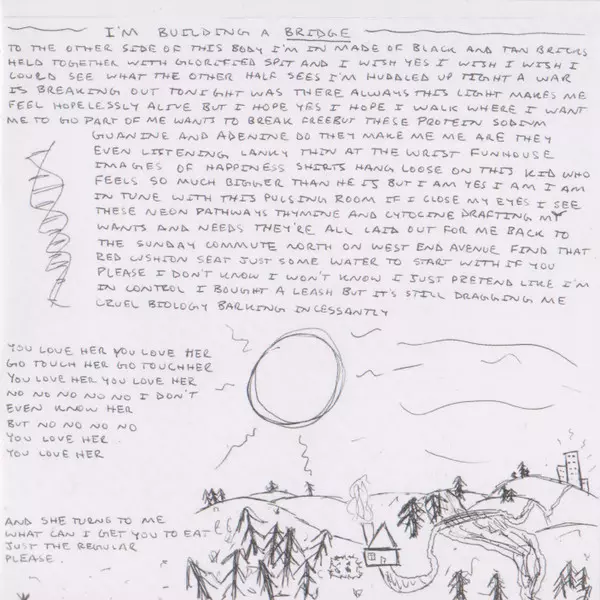 I'M BUILDING A BRIDGE
TO THE OTHER SIDE OF THIS BODY I'M IN MADE OF BLACK AND TAN BRICKS
HELD TOGETHER WITH GLORIFIED SPIT AND I WISH YES I WISH I WISH I
COULD SEE WHAT THE OTHER HALF SEES I'M HUDDLED UP TIGHT A WAR
IS BREAKING OUT TONIGHT WAS THERE ALWAYS THIS LIGHT MAKES ME
FEEL HOPELESSLY ALIVE BUT I HOPE YES I HOPE I WALK WHERE I WANT
ME TO GO PART OF ME WANTS TO BREAK FREE BUT THESE PROTEIN SODIUM
GUANINE AND ADENINE DO THEY MAKE ME ME ARE THEY
EVEN LISTENING LANKY THIN AT THE WRIST FUNHOUSE
IMAGES OF HAPPINESS SHIRTS HANG LOOSE ON THIS KID WHO
FEELS SO MUCH BIGGER THAN HE IS BUT I AM YES I AM I AM
IN TUNE WITH THIS PULSING ROOM IF I CLOSE MY EYES I SEE
THESE NEON PATHWAYS THYMINE AND CYTOCINE DRAFTING MY
WANTS AND NEEDS THEY'RE ALL LAID OUT FOR ME BACK TO
THE SUNDAY COMMUTE NORTH ON WEST END AVENUE FIND THAT
RED CUSHION SEAT JUST SOME WATER TO START WITH IF YOU
PLEASE I DON'T KNOW I WON'T KNOW I JUST PRETEND LIKE I'M
IN CONTROL I BOUGHT A LEASH BUT IT'S STILL DRAGGING ME
CRUEL BIOLOGY BARKING INCESSANTLY
YOU LOVE HER YOU LOVE HER
GO TOUCH HER GO TOUCH HER
YOU LOVE HER YOU LOVE HER
NO NO NO NO NO I DON'T
EVEN KNOW HER
BUT NO NO NO NO
YOU LOVE HER
YOU LOVE HER
AND SHE TURNS TO ME
WHAT CAN I GET YOU TO EAT
JUST THE REGULAR
PLEASE.